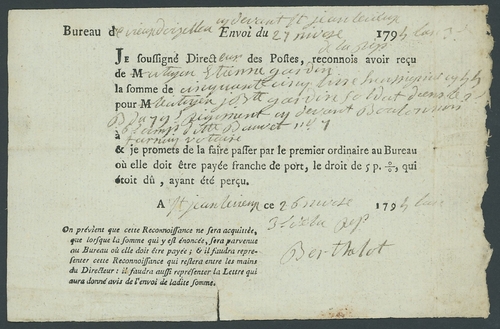 Bureau d cy devant St jean
Envoi du 27 nivose 179 lan 3e
de la rep
JE soussigné Directeur des Postes, reconnois avoir reçu
de M Citoyen Etienne gardin
la somme de cinquante cinq livre
pour M le Citoyen J Bte gardin soldat dans le 3e
B du 79e Regiment cy devant Boulonnois
à
& je promets de la faire passer par le premier ordinaire au Bureau
où elle doit être payée franche de port, le droit de 5 p. %, qui
étoit dû, ayant été perçu.
A St jean ce 26 nivose 179 lan
3e de la Rep
Berthelot
On prévient que cette Reconnoissance ne sera acquittée,
que lorsque la somme qui y est énoncée, sera parvenue
au Bureau où elle doit être payée; & il faudra repré-
senter cette Reconnoissance qui restera entre les mains
du Directeur: il faudra aussi représenter la Lettre qui
aura donné avis de l'envoi de ladite somme.